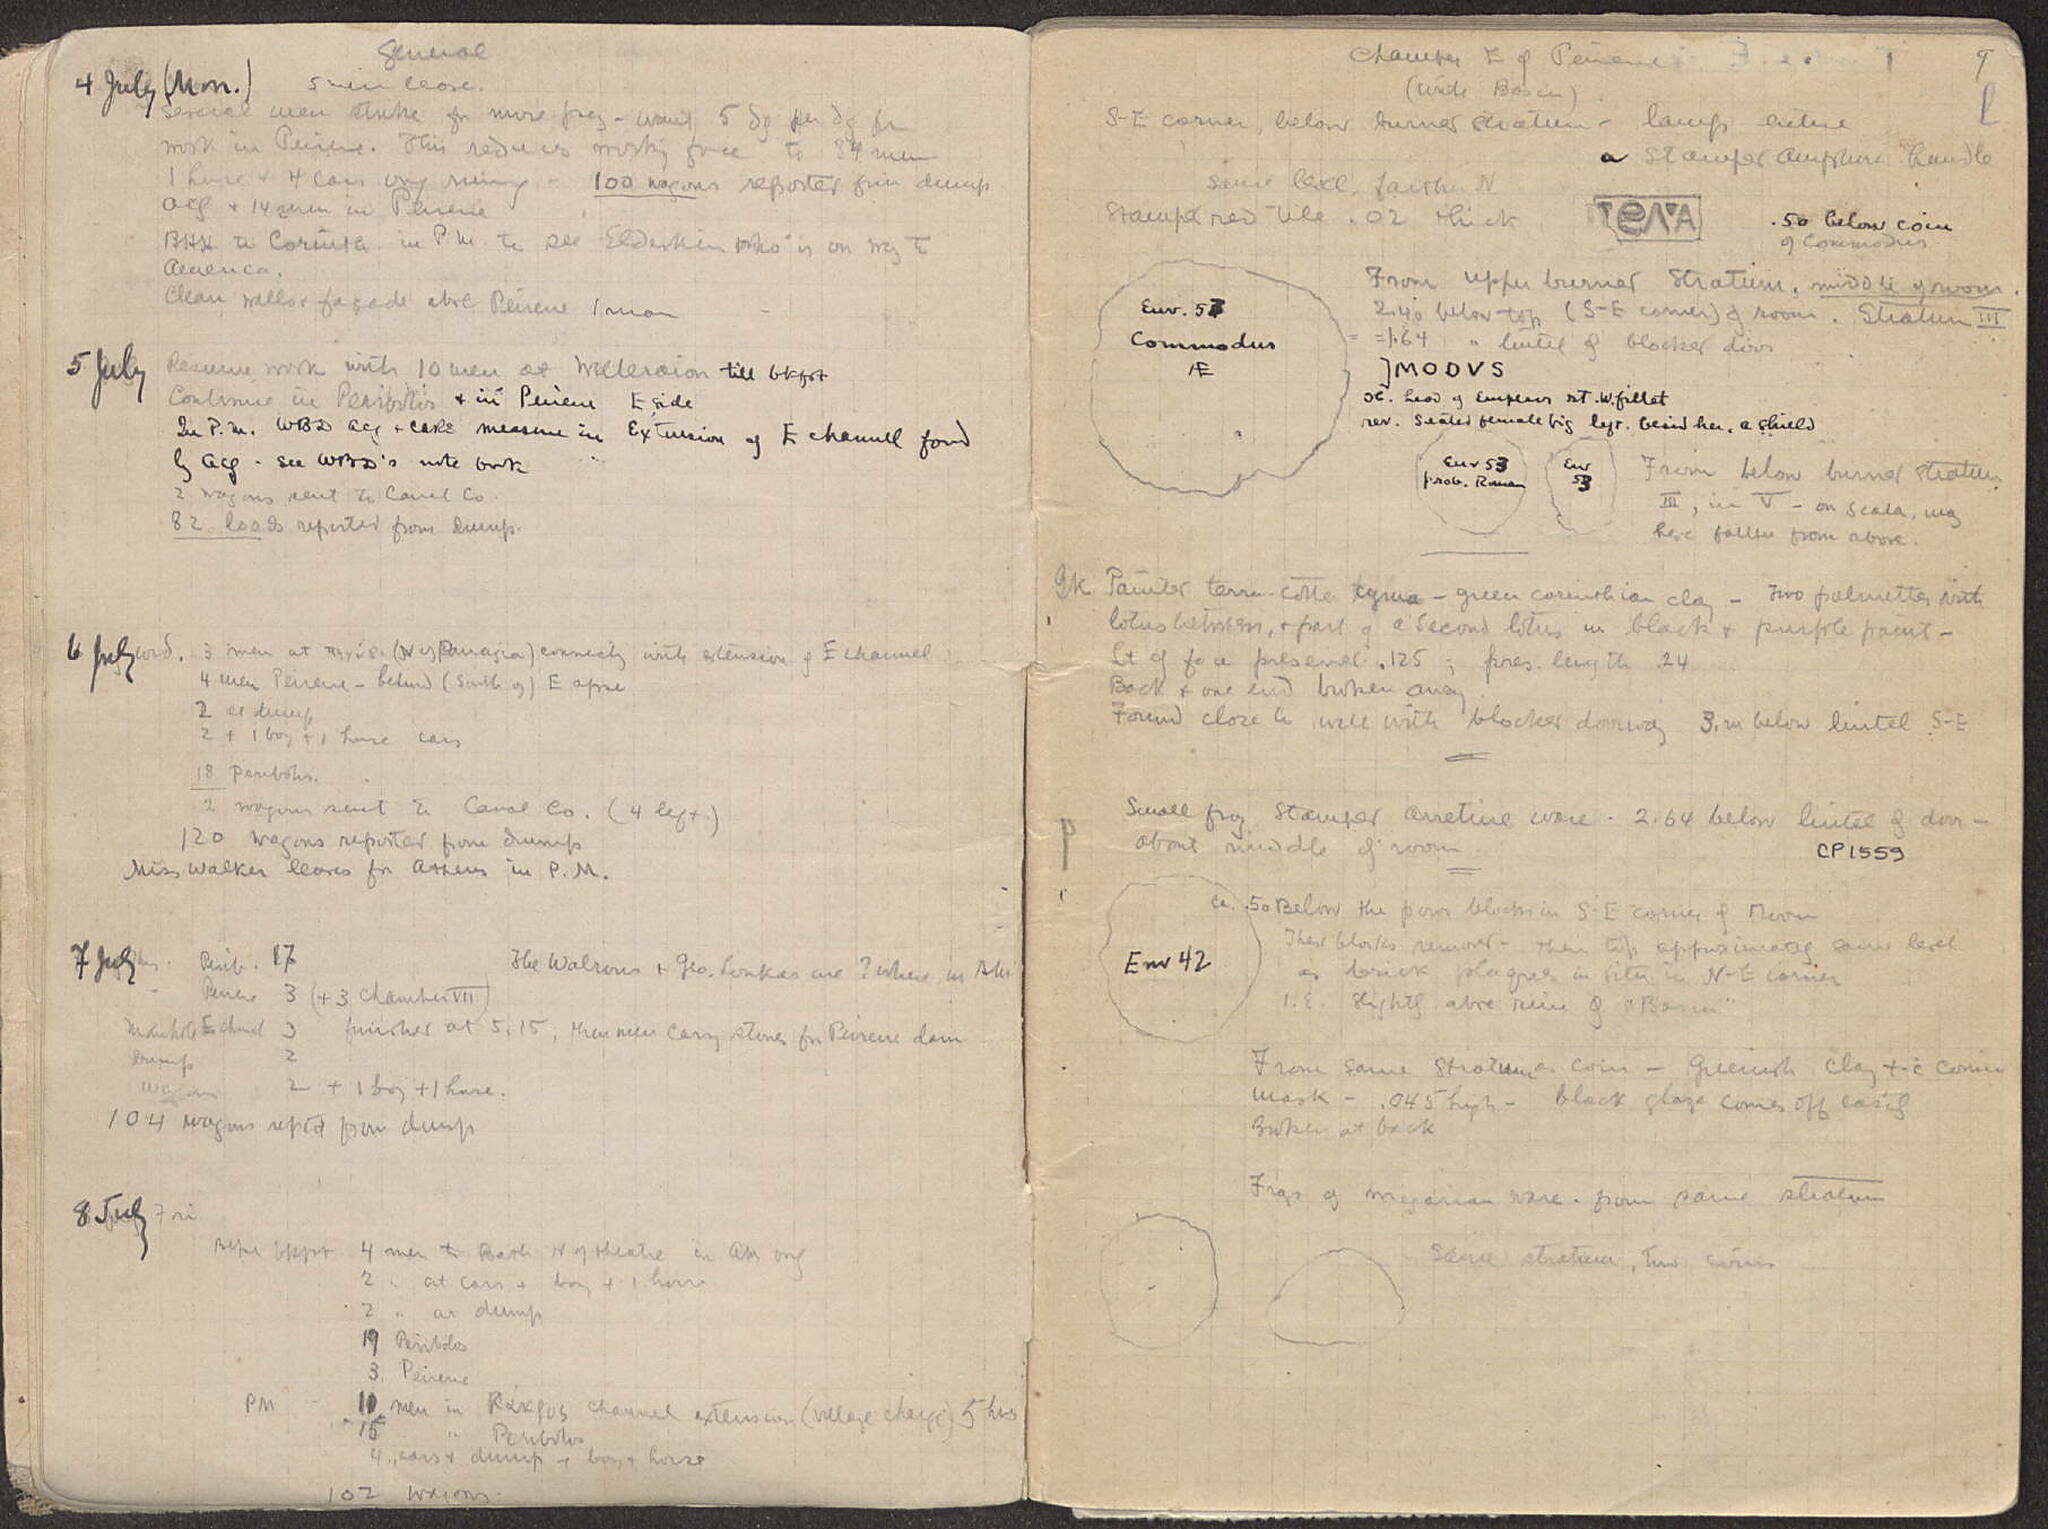 General
4 July (Mon.)
Several men strike for more pay - want 5 dr per day for
work in Peirene. This reduces working force to 84 men
1 horse + 4 cars only running - 100 wagons reported from dump
ACG + 14 men in Peirene
BHH to Corinth in P.M. to see Elderkin who is on way to
America.
Clean wall & façade above Peirene 1 man
5 July Resume work with 10 men at till bkfst
Continue in Peribolos + in Peirene E side
In P.M. WBD ACG + measure in Extension of E channel found
by ACG - see WBD's note book
2 wagons sent to Canal Co.
82 loads reported from dump.
6 July Wed. 3 men at (N of Panagia) connecting with extension of E channel
4 men Peirene - behind (South of) E apse
2 at dump
2 + 1 boy + 1 horse cars
18 Peribolos.
2 wagons sent to Canal Co. (4 left.)
120 wagons reported from dump
Miss Walker leaves for Athens in P.M.
7 July Perib. 17 The + Geo. ? where in
Peirene 3 (+3 Chamber VII)
Manhole E channel 3 finished at 5.15, then men carry stones for Peirene dam
Dump 2
Wagons 2 + 1 boy + 1 horse.
104 wagons reptd from dump
8 July Fri
Before bkfst 4 men to Bath N of theatre in AM only
2 " at cars + boy + 1 horse
2 " at dump
19 Peribolos
3. Peirene
PM - 10 men in channel extension (village charge) 5 hrs
15 " Peribolos
4 cars + dump + boy + horse
102 wagons.
Chamber E of Peirene 9
(with Basin).
S-E corner, below burned stratum - lamp entire
a stamped amphora handle
Same level, farther N
Stamped red tile .02 thick .50 below coin
of Commodus
From upper burned stratum, middle of room.
Env. 53 2.40 below top (S-E corner) of room. Stratum III
Commodus = 1.64 " lintel of blocked door
Æ ]MODVS
ob. head of Emperor rt. w. fillet
rev. Seated female fig left. beside her, a shield
Env 53 Env From below burned stratum
prob. Roman 53 III, in V - on scala, may
have fallen from above.
9k Painted terra-cotta cyma - green corinthian clay - two palmettes with
lotus between, + part of a second lotus in black + purple paint -
Ht of face preserved .125 ; pres. length .24
Back + one end broken away
Found close to wall with blocked doorway 3. m below lintel S-E
Small frag stamped arretine ware - 2.64 below lintel of door -
about middle of room. CP1559
ca. .50 Below the poros blocks in S-E corner of Room
These blocks removed - their top approximately same level
Env 42 as brick plaques in situ in N-E corner
i.e. slightly above ruin of "Basin"
From same stratum as coin - Greenish clay comic
mask - .045 high - black glaze comes off easily
Broken at back
Frags of megarian ware - from same stratum
Same stratum, two coins